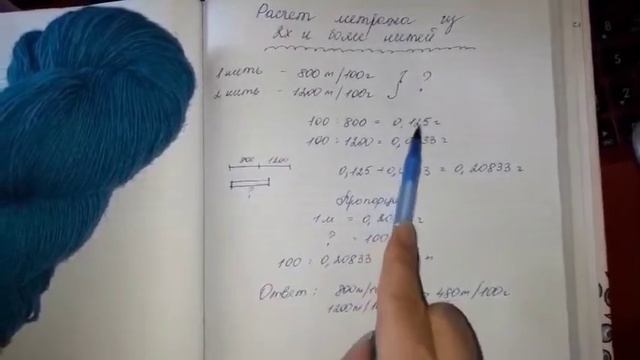 Расчет метража из
2х и более нитей
1 нить - 800 m/100г
2 нить - 1200 m/100г } ?
100 : 800 = 0,125 г
100 : 1200 = 0,0833 г
800 1200
?
0,125 + 0,0 3 = 0,20833 г
1 м = 0,20 г
? = 100
100 : 0,20833
Ответ: 800 m/1 = 480 m/100г
1200 m/1